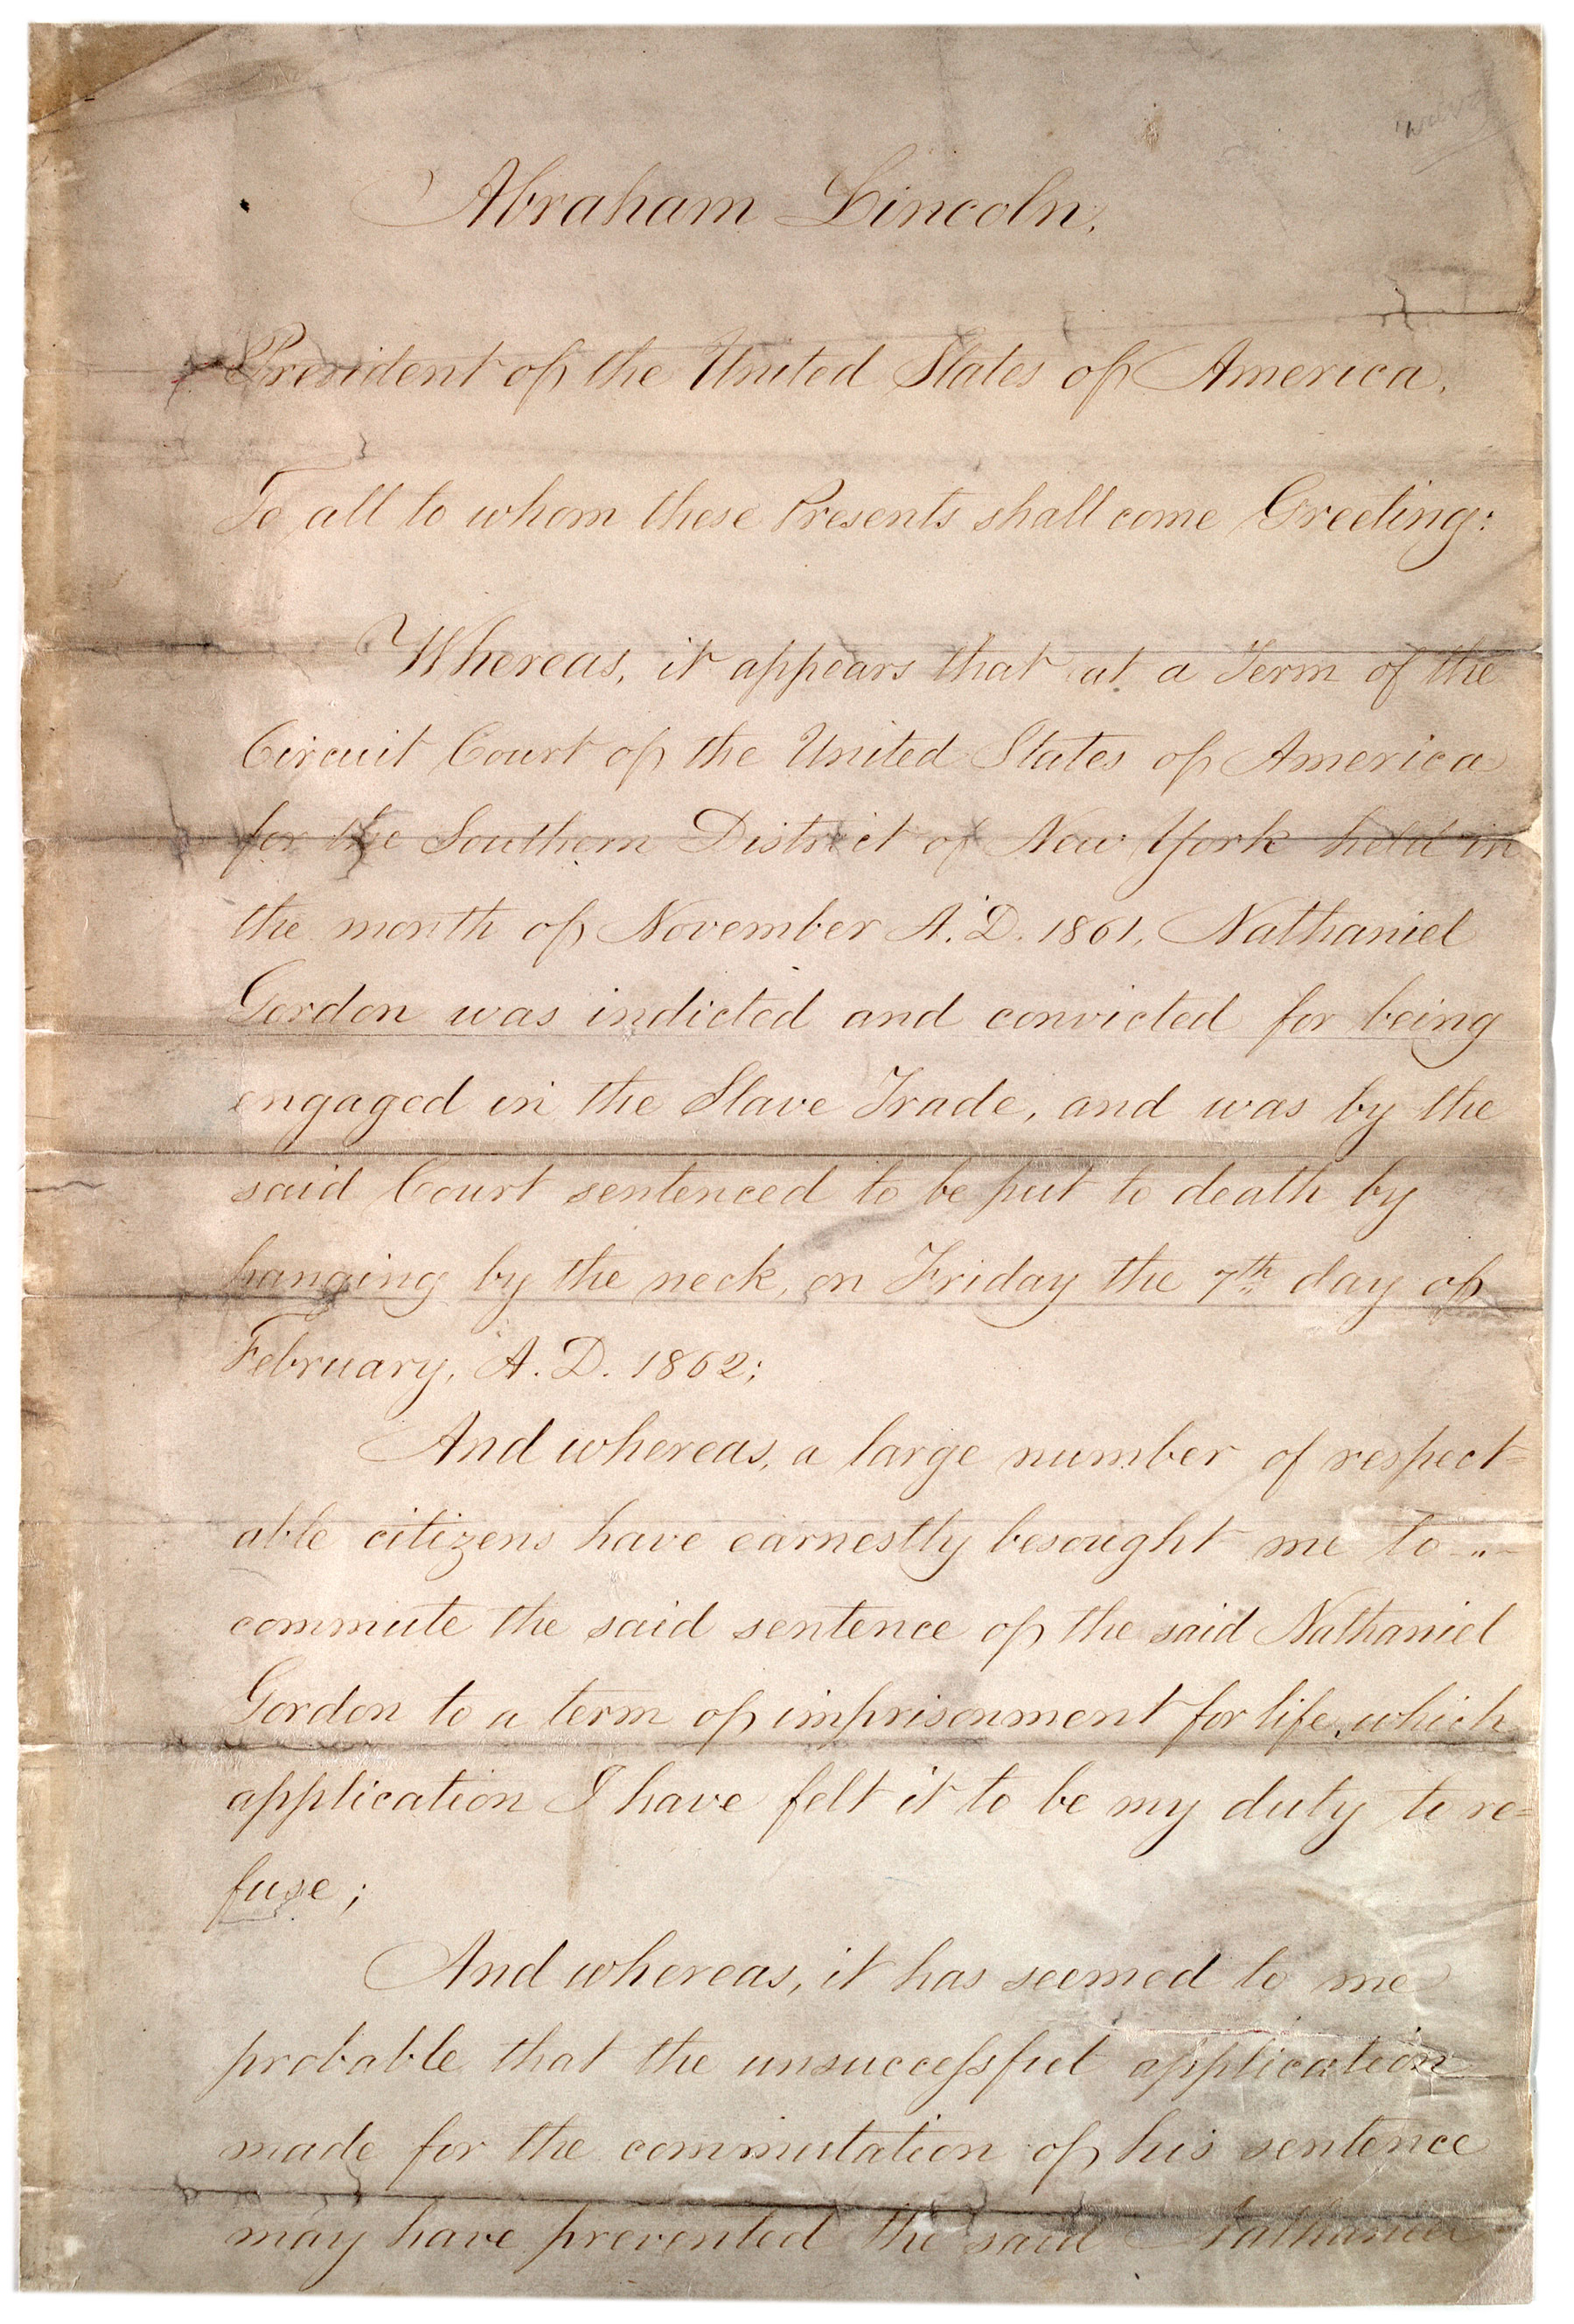 Abraham Lincoln,
President of the United States of America,
To all to whom these Presents shall come Greeting:
Whereas, it appears that at a Term of the
Circuit Court of the United States of America
for the Southern District of New York held in
the month of November A.D. 1861, Nathaniel
Gordon was indicted and convicted for being
engaged in the Slave Trade, and was by the
said Court sentenced to be put to death by
hanging by the neck, on Friday the 7th day of
February, A.D. 1862;
And whereas, a large number of respect=
able citizens have earnestly besought me to
commute the said sentence of the said Nathaniel
Gordon to a term of imprisonment for life, which
application I have felt it to be my duty to re=
fuse;
And whereas, it has seemed to me
probable that the unsuccessful application
made for the commutation of his sentence
may have prevented the said Nathaniel